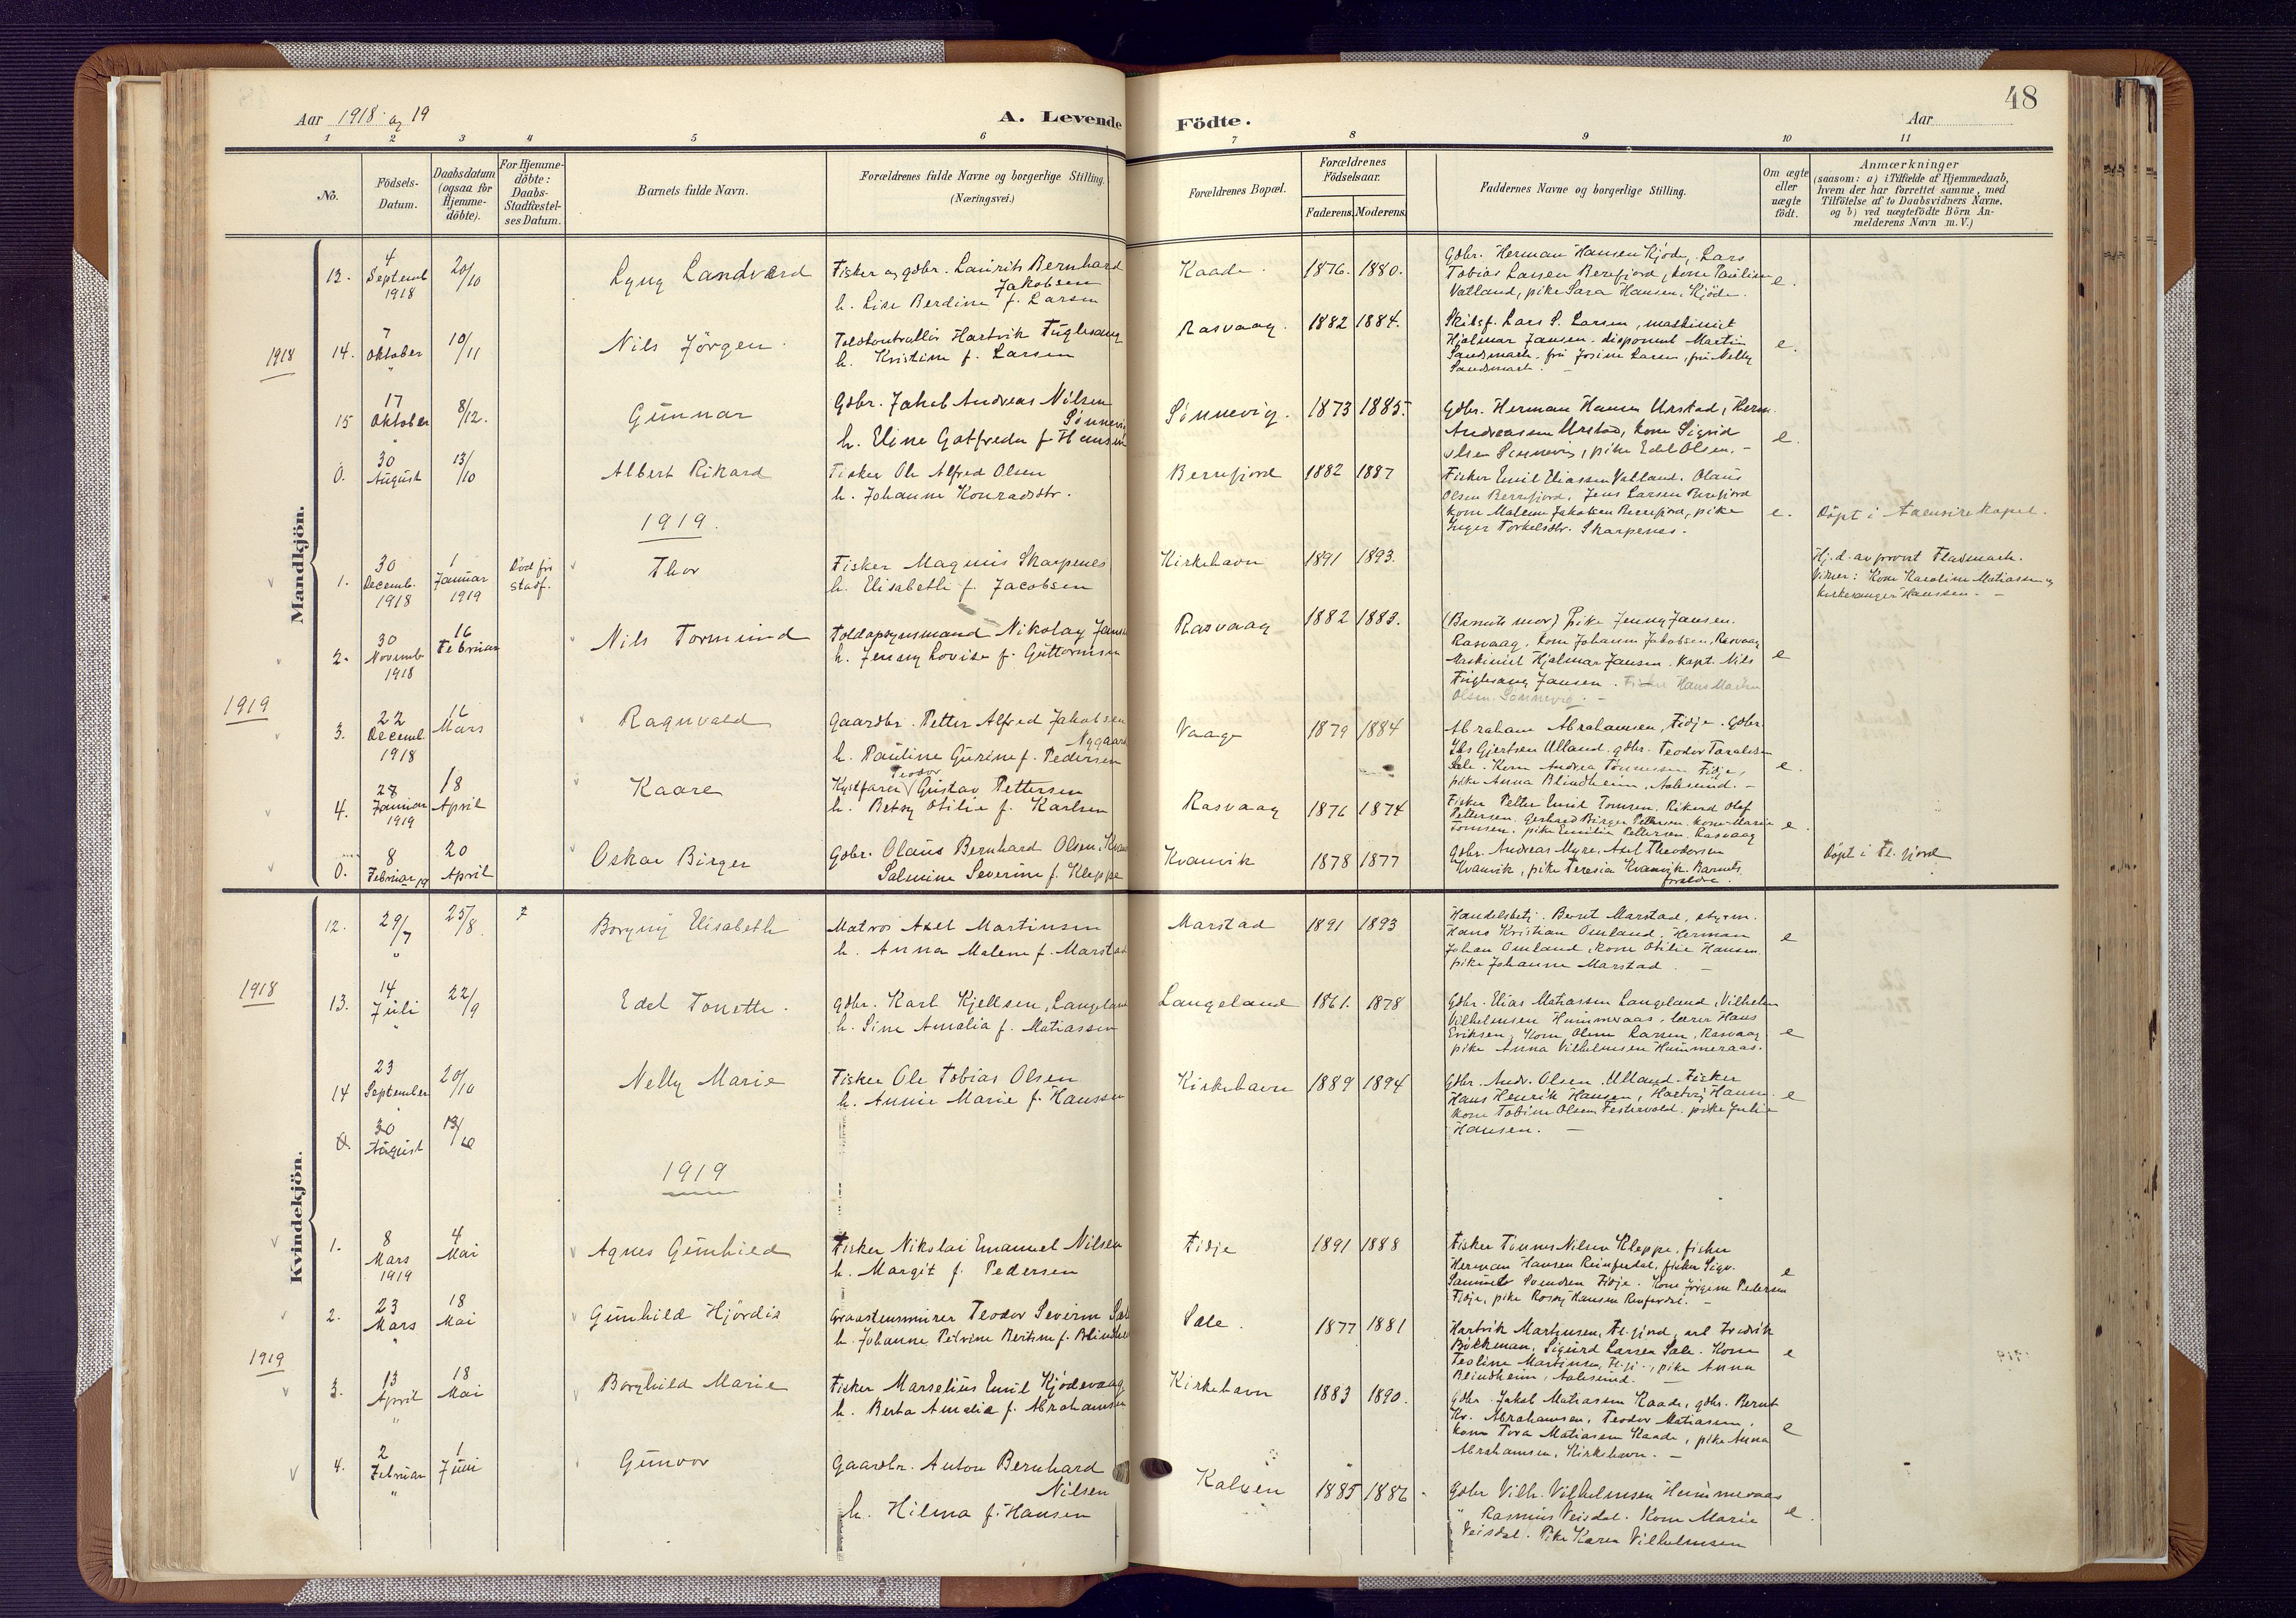 48
Aar 1918 og 19
A. Levende Födte.
Aar
1 2 3 4 5 6 7 8 9 10 11
No.
Födsels-
Datum.
Daabsdatum
(ogsaa for
Hjemme-
döbte).
For Hjemme-
döbte:
Daabs-
Stadfæstel-
ses Datum.
Barnets fulde Navn.
Forældrenes fulde Navne og borgerlige Stilling.
(Næringsvei.)
Forældrenes Bopæl.
Forældrenes
Födselsaar.
Faderens. Moderens.
Faddernes Navne og borgerlige Stilling.
Om ægte
eller
uægte
födt.
Anmærkninger
(saasom: a) i Tilfælde af Hjemmedaab,
hvem der har forrettet samme, med
Tilföielse af to Daabsvidners Navne,
og b) ved uægtefödte Börn An-
melderens Navn m. V.)
Mandkjön.
1918
13.
4
Septemb
1918
20/10
Lyng Landværd
Fisker og gdbr. Laurits Bernhard
Jakobsen
h. Lise Berdine f. Larsen
Kaade.
1876. 1880.
Gdbr. Herman Hansen Kjöde, Lars
Tobias Larsen Berrefjord, kone Pauline
Vatland, pike Sara Hansen, Kjöde.
e.
14.
7
Oktober
"
10/11
Nils Jörgen.
Toldkontrollör Hartvik Fuglesang
h. Kristine f. Larsen
Rasvaag.
1882 1884.
Skibsf. Lars S. Larsen, maskinist
Hjalmar Jansen. disponent Martin
Sandsmark. fru Josine Larsen, fru Nelly
Sandsmark. —
e.
15
17
Oktober
"
8/12.
Gunnar
Gdbr. Jakob Andreas Nilsen
h. Eline Gotfreda f. Hansen
Sönnevig.
1873 1885.
Gdbr. Herman Hansen Urstad, Herm.
Andreassen Urstad, kone Sigrid
Olsen Sönnevig, pike Edel Olsen. —
e.
0.
30
August
13/10
Albert Rikard
Fisker Ole Alfred Olsen
h. Johanne Konradsdtr.
Berrefjord
1882 1887
Fisker Emil Eliassen Vatland. Olaus
Olsen Berrefjord, Jens Larsen Berefjord
kone Malene Jakobsen Berrefjord, pike
Inger Torkelsdtr. Skarpenes.
e.
Döpt i kapel.
1919.
1919
1.
30
Decemb.
1918
1
Januar
1919
Död för
stadf.
Thor
Fisker Magnus Skarpenes
h. Elisabeth f. Jacobsen
Kirkehavn
1891 1893.
Hj. d. av provst Fladmark.
Vidner: Kone Karoline Matiassen og
kirkesanger Hanssen. —
2.
30
Novemb
1918
16
Februar
Nils Tormund
Toldopsynsmand Nikolay Jansen
h. Jenny Lovise f. Guttormsen
Rasvaag
1882 1883.
(Barnets mor) Pike Jenny Jansen.
Rasvaag, kone Johanne Jakobsen, Rasvaag
Maskinist Hjalmar Jansen. Kapt. Nils
Fuglesang Jansen. Fisker Hans Martin
Olsen. Sönnevig. —
e
3.
22
Decemb.
1918
16
Mars
Ragnvald
Gaardbr. Petter Alfred Jakobsen
Nygaard
h. Pauline Gurine f. Pedersen
Vaage
1879 1884
Abraham Abrahamsen, Fidje. Gdbr.
Gjertsen Ulland. gdbr. Teodor Taraldsen
Sele. Kone Andrea Tönnessen Fidje,
pike Anna Blindheim, Aalesund. —
e.
4.
28
Januar
1919
18
April
Kaare
Teodor
Kystfarer Gustav Pettersen
h. Betsy Otilie f. Karlsen
Rasvaag
1876 1874
Fisker Petter Emil Tomsen. Rikard Olaf
Pettersen. Gerhard Birger Pettersen. kone Marie
Tomsen, pike Emilie Pettersen. Rasvaag
e.
0.
8
Februar 19
20
April
Oskar Birger
Gdbr. Olaus Bernhard Olsen, Kvan
Salmine Severine f. Kleppe
Kvanvik
1878 1877
Gdbr. Andreas Myre, Axel Theodorsen
Kvanvik, pike Teresia Kvanvik. Barnets
foreldre.
Döpt i Fl. fjord
Kvindekjön.
1918
12.
29/7
"
25/8
Borgny Elisabeth
Matros Axel Martinsen
h. Anna Malene f. Marstad
Marstad
1891 1893
Handelsbetj. Bernt Marstad, styrm.
Hans Kristian Omland, Herman
Johan Omland, kone Otilie Hansen.
pike Johanne Marstad. —
e
13.
14
Juli
"
22/9
Edel Tonette.
Gdbr. Karl Kjellsen, Langeland
h. Sine Amalia f. Matiassen
Langeland
1861. 1878
Gdbr. Elias Matiassen Langeland, Vilhelm
Vilhelmsen Hummeraas. lærer Hans
Eriksen, kone Olene Larsen, Rasvaag
pike Anna Vilhelmsen Hummeraas.
e
14
23
September
"
20/10
Nelly Marie
Fisker Ole Tobias Olsen
h. Annie Marie f. Hanssen
Kirkehavn
1889 1894
Gdbr. Andr. Olsen, Ulland. Fisker
Hans Henrik Hansen, Hartvig Hansen
kone Tobine Olsen Festervold. pike Julie
Hansen. —
e
0.
30
August
13/10
1919
1.
8
Mars
1919
4
Mai
Agnes Gunhild
Fisker Nikolai Emanuel Nilsen
h. Margit f. Pedersen
Fidje
1891 1888
Fisker Tönnes Nilsen Kleppe, fisker
Herman Hansen Reinferdal, fisker Sigv.
Svendsen Fidje. Kone Jörgine Pedersen
Fidje, pike Rossy Hansen Renferdal. —
e
2.
23
Mars
"
18
Mai
Gunhild Hjördis
Graastensmurer Teodor Severin Sæle
h. Johanne Petrine Bertine f. Blindheim
Sæle.
1877 1881
Hartvik Martinsen, Fl. fjord, arb Fredrik
Böckman, Sigurd Larsen Sæle. Kone
Teoline Martinsen, Fl. fj., pike Anna
Blindheim, Aalesund. —
e
1919
3.
13
April
"
18
Mai
Borghild Marie
Fisker Marselius Emil Kjödevaag
h. Berta Amalia f. Abrahamsen
Kirkehavn
1883 1890.
Gdbr. Jakob Matiassen Kaade, gdbr. Bernt
Kr. Abrahamsen, Teodor Matiassen,
kone Tora Matiassen Kaade, pike Anna
Abrahamsen, Kirkehavn. —
e
4.
2
Februar
"
1
Juni
Gunvor
Gaardbr. Anton Bernhard
Nilsen
h. Hilma f. Hansen
Kalven
1885 1886
Gdbr Vilh. Vilhelmsen Hummeraas
" Rasmus Veisdal. Kone Marie
Veisdal. Pike Karen Vilhelmsen
e.